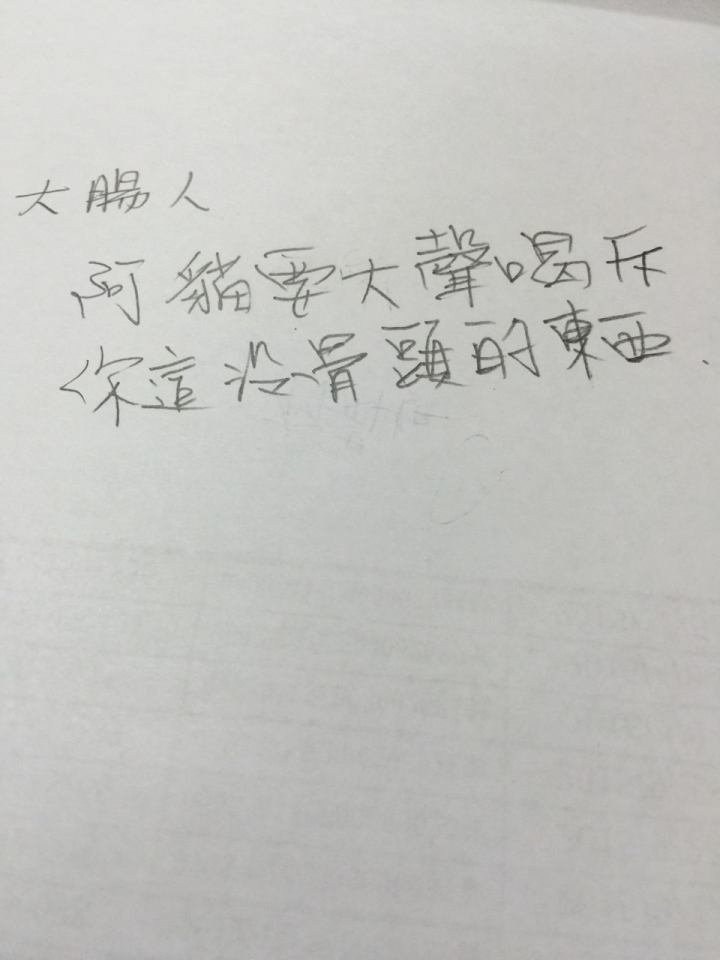 大腸人
阿貓要大聲喝斥
你這沒骨頭的東西.